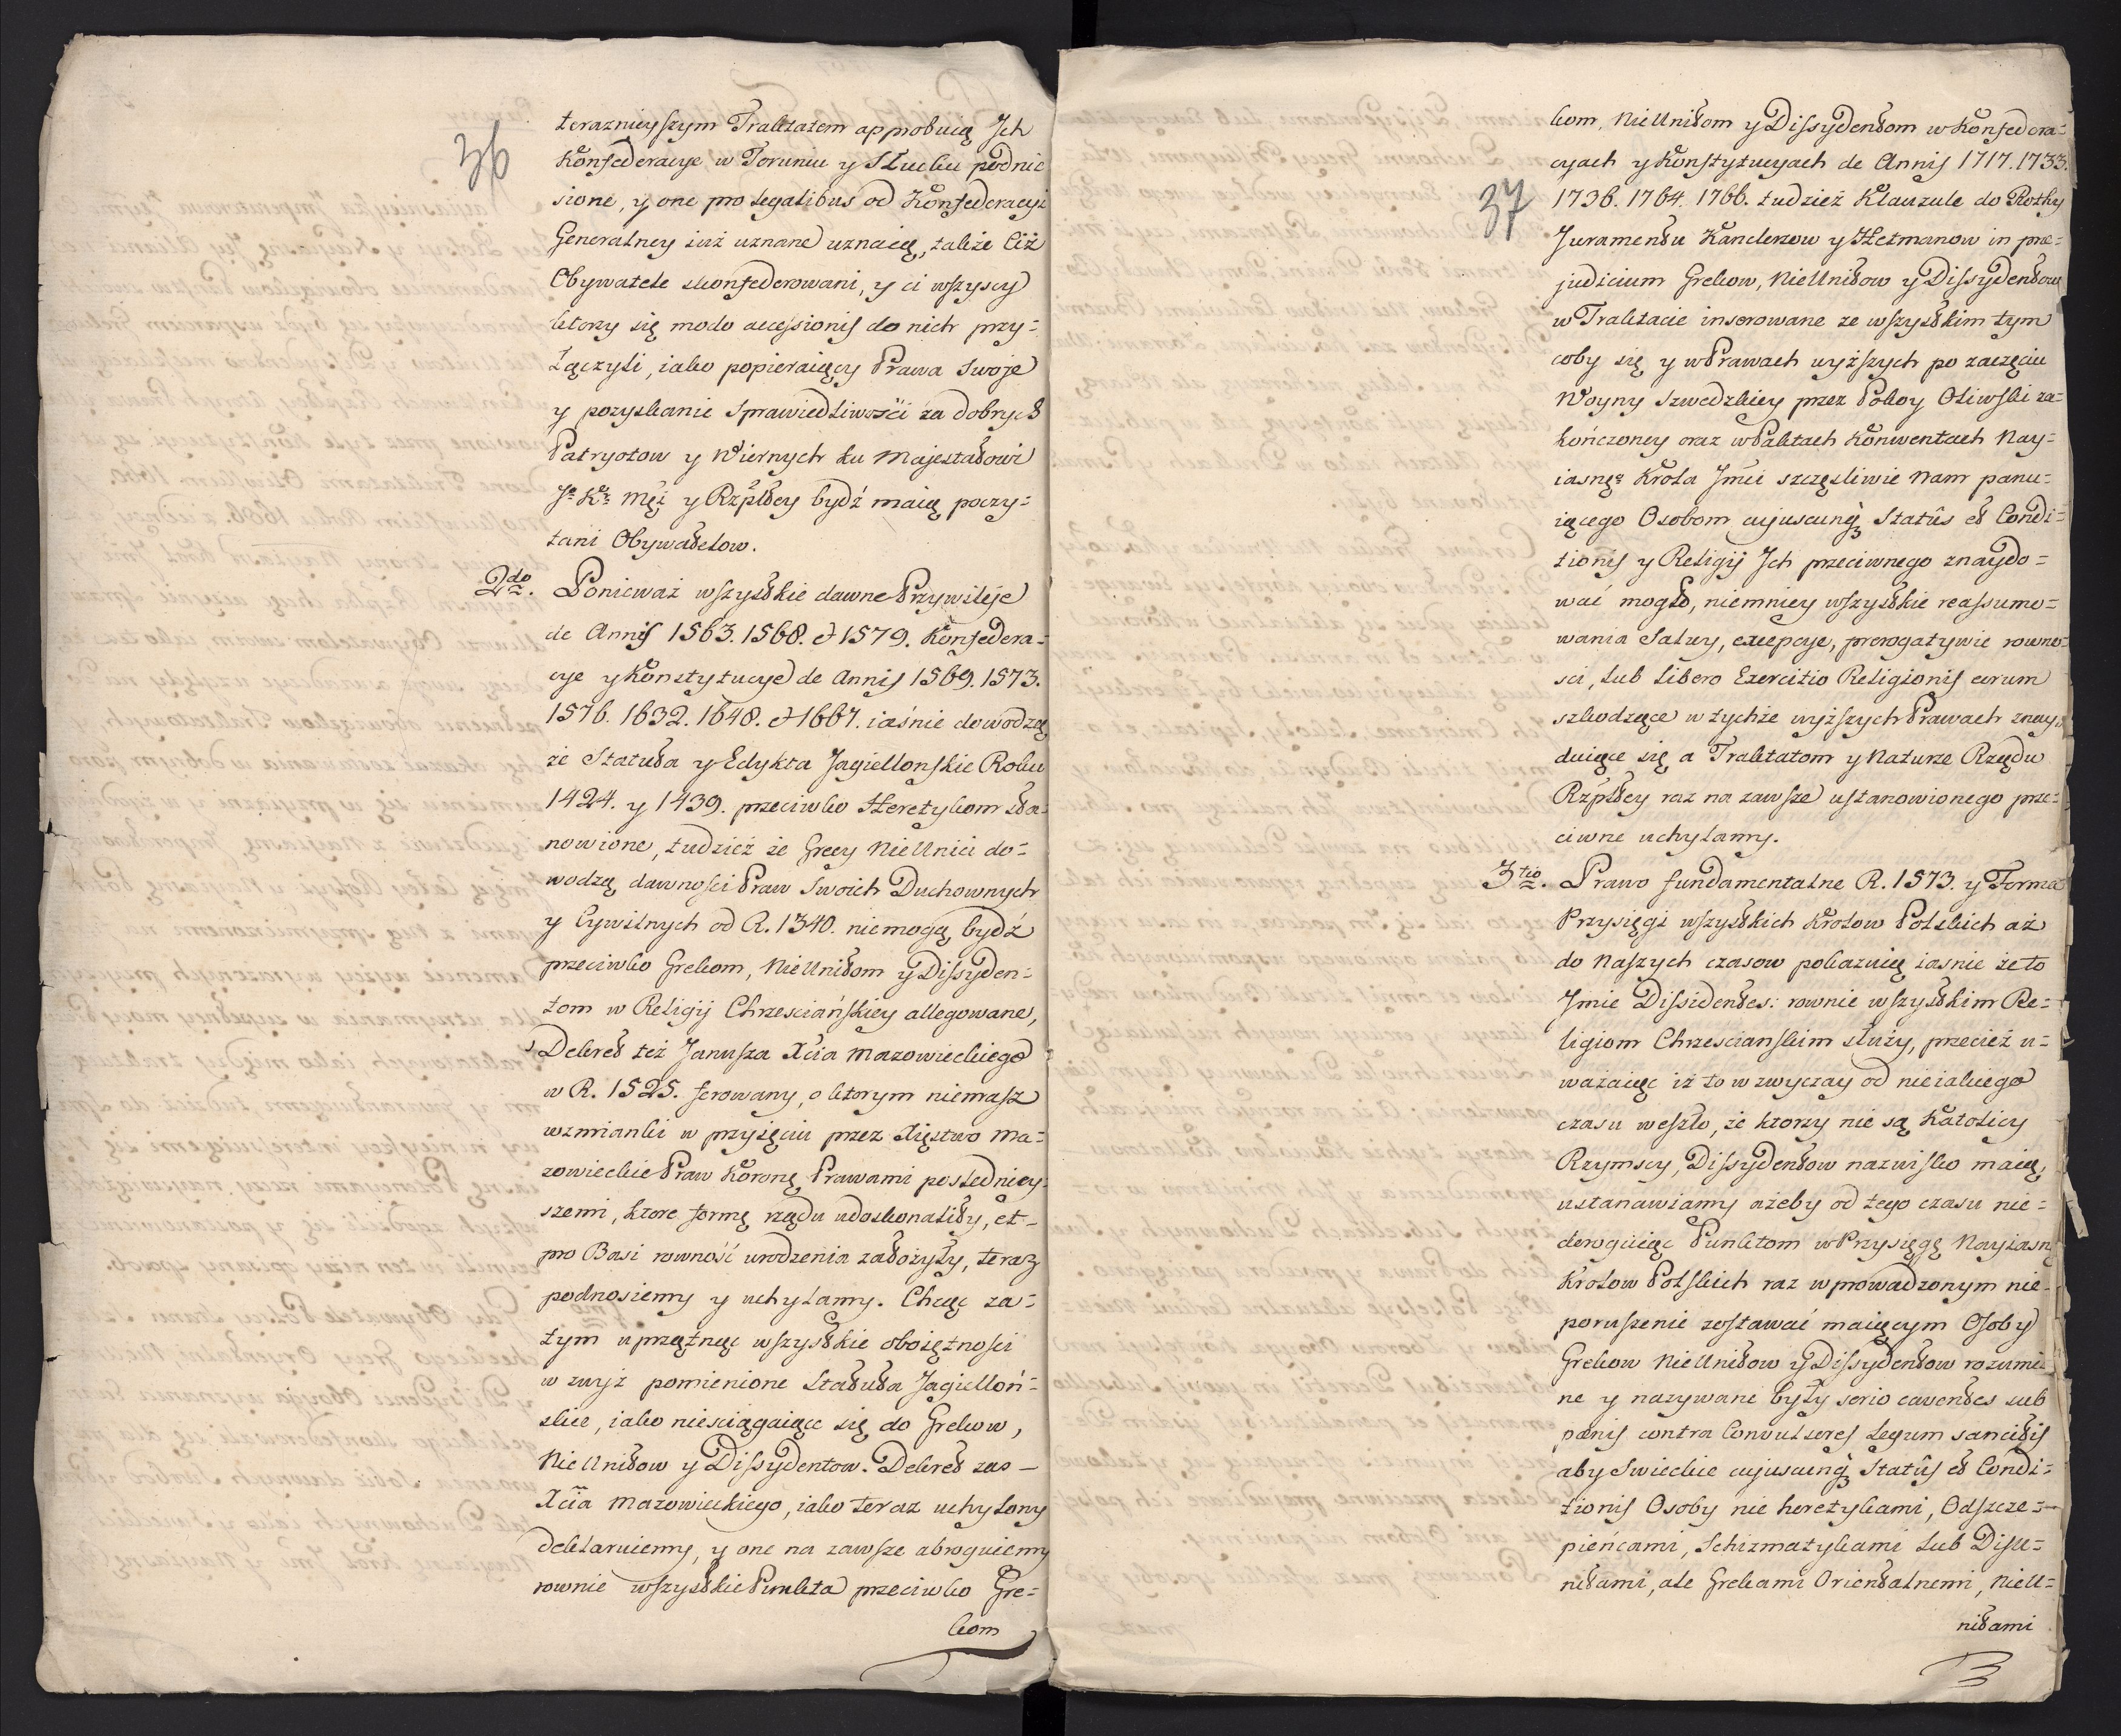 36
teraznieyszym Traktatem approbuią Ich
Konfederacye w Toruniu y Słucku podnie
sione, y one pro legalibus od Konfederacyi
Generalney iuż uznane uznaią, także Ciż
Obywatele skonfederowani, y ci wszyscy
ktorzy się modo accessionis do nich przy=
łączyli, iako popieraiący Prawa Swoje
y pozyskanie Sprawiedliwości za dobrych
Patryotow y Wiernych ku Majestatowi
Jº Kr Mći y Rzpltey bydź maią poczy=
tani Obywatelow.
2do. Ponieważ wszystkie dawne Przywileje
de Annis 1563. 1568. et 1579. Konfedera=
cye y Konstytucye de Annis 1569. 1573.
1576. 1632. 1648. et 1667. iaśnie dowodzą
że Statuta y Edykta Jagiellonskie Roku
1424. y 1439. przeciwko Heretykom sta=
nowione, tudzież że Grecy NieUnici do=
wodzą dawności Praw Swoich Duchownych
y Cywilnych od R. 1340. niemogą bydź
przeciwko Grekom, NieUnitom y Dissyden=
tom w Religij Chrzesciańskiey allegowane,
Dekret też Janusza Xcia Mazowieckiego
w R. 1525. ferowany, o ktorym niemasz
wzmianki w przyięciu przez Xięstwo Ma=
zowieckie Praw Koronę Prawami posledniey=
szemi, ktore formę rządu udoskonaliły, et
pro Basi rowność urodzenia założyły, teraz
podnosiemy y uchylamy. Chcąc za=
tym uprzątnąc wszystkie oboiętnosci
w zwyż pomienione Statuta Jagielloń=
skie, iako niesciągaiące się do Grekow,
NieUnitow y Dissydentow. Dekret zas
Xcia Mazowieckiego, iako teraz uchylony
deklaruiemy, y one na zawsze abroguiemy
rownie wszystkie Punkta przeciwko Gre=
kom
37
kom, NieUnitom y Dissydentom w Konfedera=
cyach y Konstytucyach de Annis 1717. 1733.
1736. 1764. 1766. tudzież Klauzule do Rothy
Juramentu Kanclerzow y Hetmanow in præ=
judicium Grekow, NieUnitow y Dissydentow
w Traktacie inserowane ze wszystkim tym
coby się y w Prawach wyższych po zaczęciu
Woyny Szwedzkiey przez Pokoy Oliwski za=
kończoney oraz w Paktach Konwentach Nay=
iasnº Krola Jmći szczęsliwie Nam panu=
iącego Osobom cujuscunq Statûs et Condi=
tionis y Religij Ich przeciwnego znaydo=
wać mogło, niemniey wszystkie reassumo=
wania Salwy, excepcye, prerogatywie rowno=
sci, lub libero Exercitio Religionis eorum
szkodzące w tychże wyższych Prawach znay=
duiące się a Traktatom y Naturze Rządu
Rzpltey raz na zawsze ustanowionego prze=
ciwne uchylamy.
3tio. Prawo fundamentalne R. 1573. y Forma
Przysięgi wszystkich Krolow Polskich aż
do Naszych czasow pokazuią iasnie że to
Jmie Dissidentes: rownie wszystkim Re=
ligiom Chrzescianskim służy, przecież u=
ważaiąc iż to w zwyczay od nieiakiego
czasu weszło, że ktorzy nie są Katolicy
Rzymscy, Dissydentow nazwisko maią,
ustanawiamy ażeby od tego czasu nie=
deroguiąc Punktom w Przysięgę Nayiasn
Krolow Polskich raz wprowadzonym nie=
poruszenie zostawać maiącym Osoby
Grekow NieUnitow y Dissydentow rozumia
ne y nazywane były serio caventes sub
pænis contra Convulsores Legum sancitis
aby Swieckie cujuscunq Statûs et Condi=
tionis Osoby nie heretykami, Odszcze=
pieńcami, Schizmatykami lub Disu=
nitami, ale Grekami Orientalnemi, NieU=
nitami